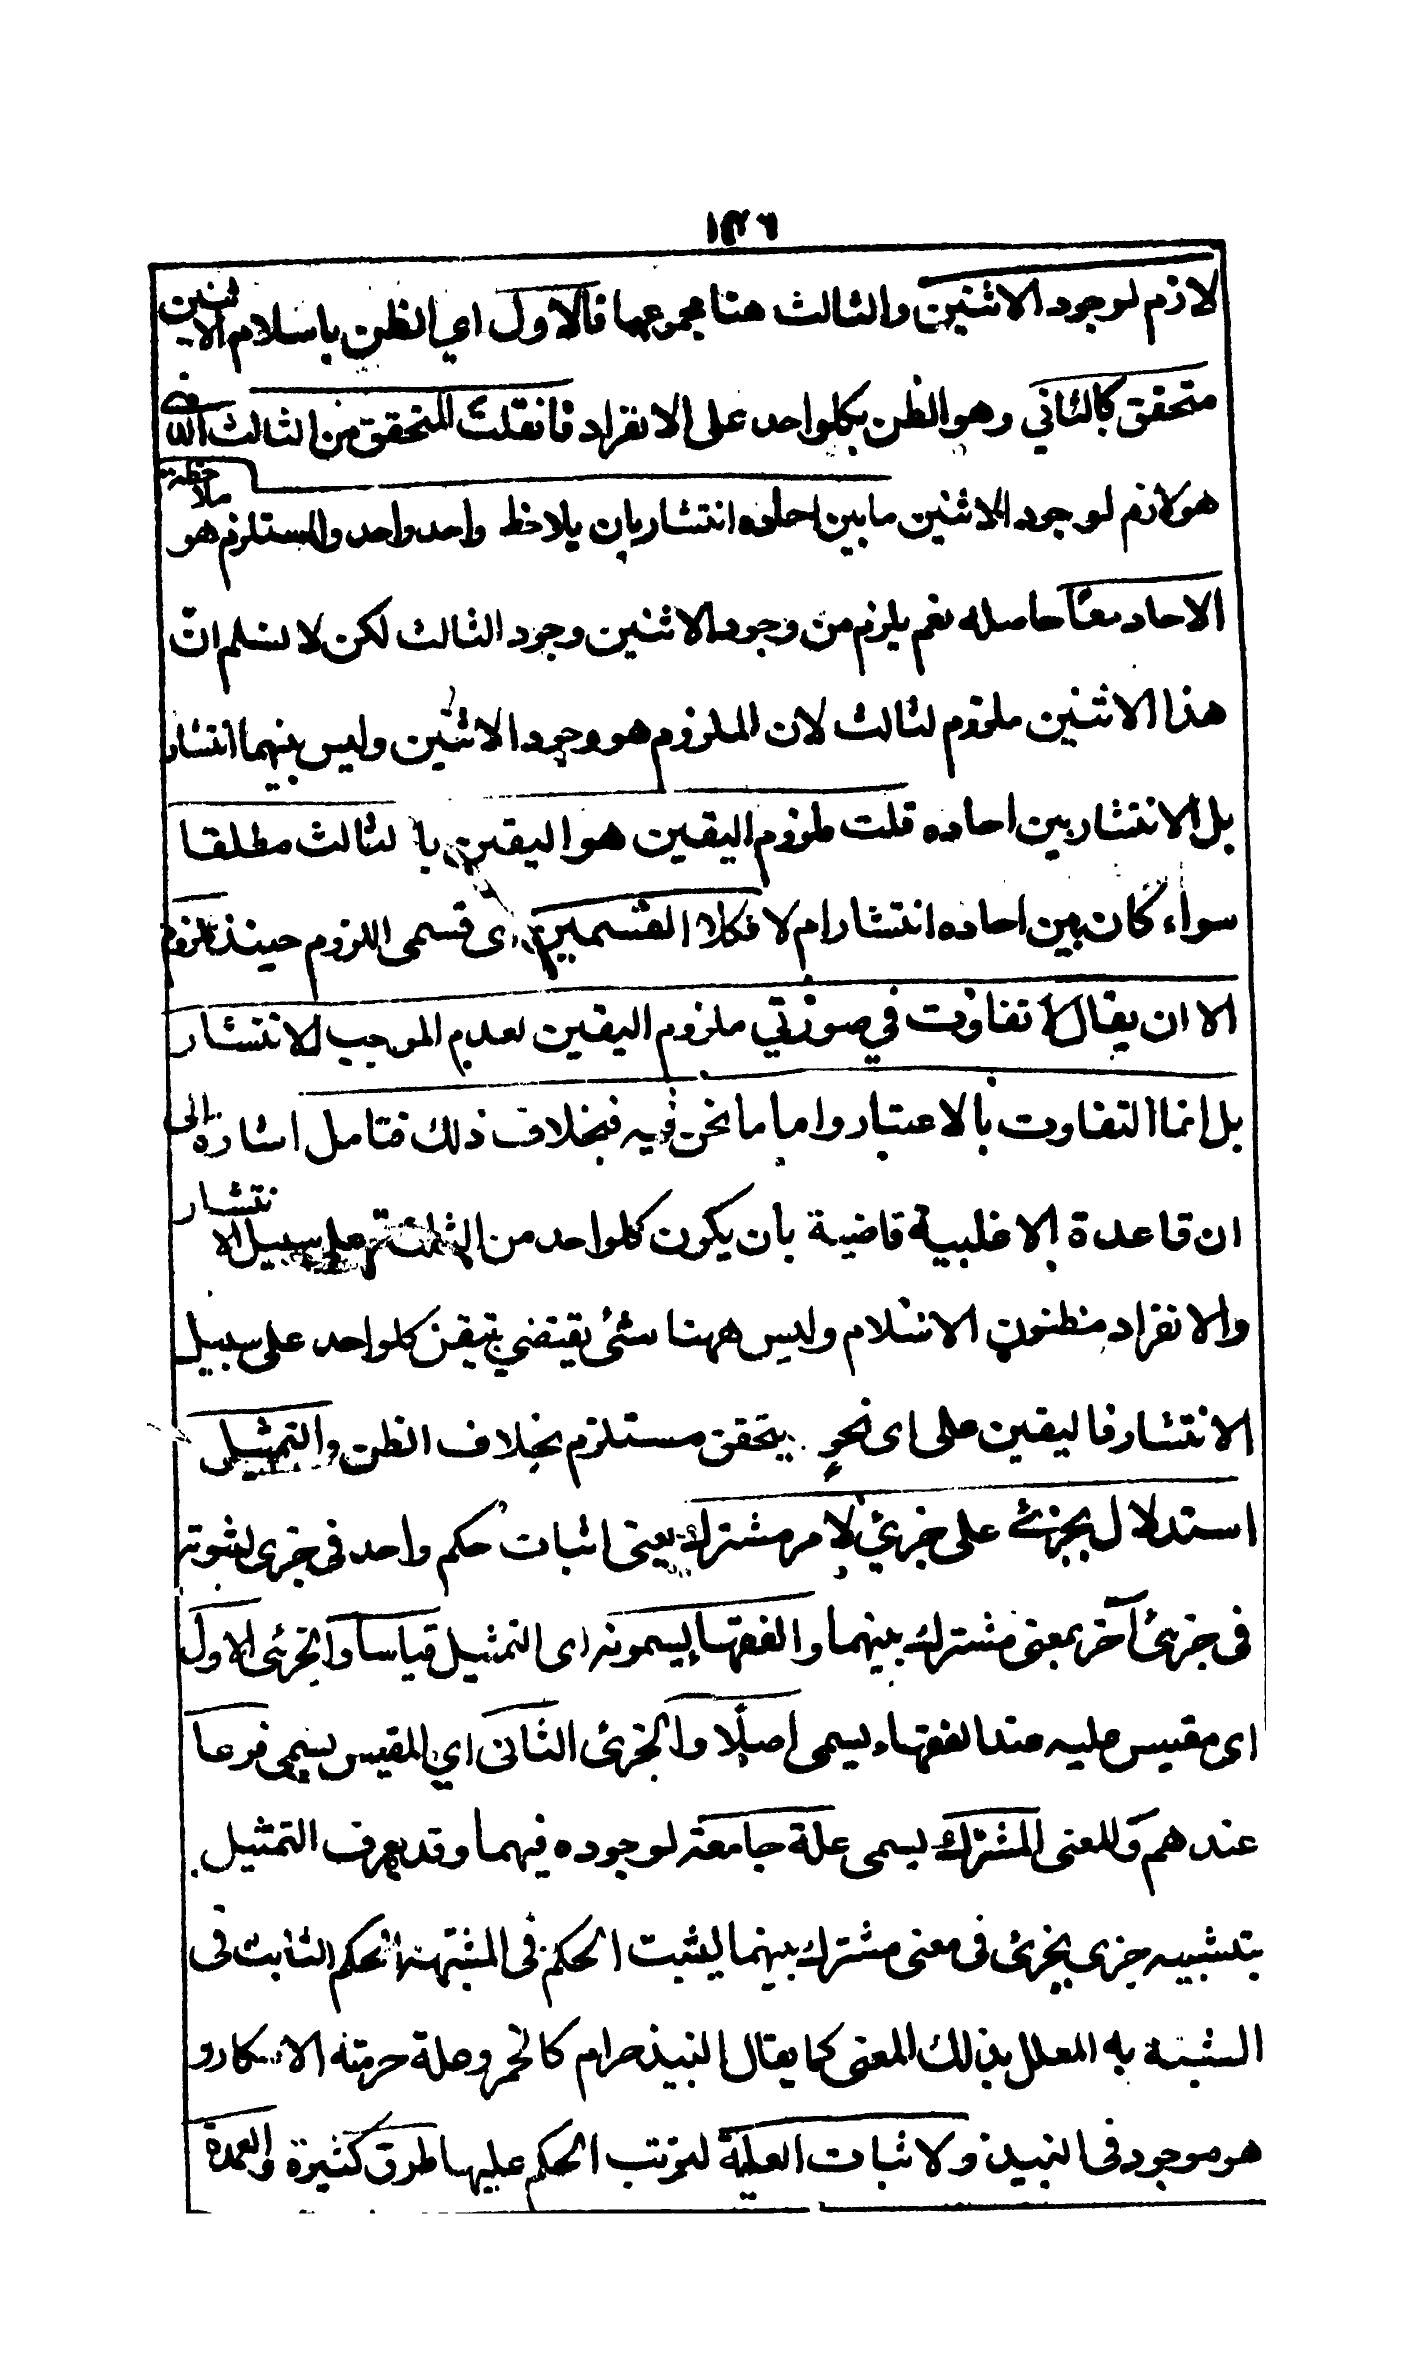 ١٢٦
لازم لوجود الاثنين والثالث هنا مجموعهما فالاول اي الظن باسلام الاثنين
متحقق كالثاني وهو الظن بكلواحد على الانفراد فان قلت المتحقق من الثالث الذي
هو لازم لوجود الاثنين ما بين احاده انتشار بان يلاحظ واحد واحد والمستلزم هو ملاحظة
الاحاد معًا حاصله نعم يلزم من وجود الاثنين وجود الثالث لكن لا نسلم ان
هذا الاثنين ملزوم لثالث لان الملزوم هو وجود الاثنين وليس بينهما انتشار
بل الانتشار بين احاده قلت ملزوم اليقين هو اليقين بالثالث مطلقا
سواء كان بين احاده انتشار ام لا فكلا القسمين اى قسمى اللزوم حينئذ ملزوم
الا ان يقال لا تفاوت في صورتي ملزوم اليقين لعدم الموجب لانتشار
بل انما التفاوت بالاعتبار واما ما نحن فيه فبخلاف ذلك فتامل اشارة الى
ان قاعدة الاغلبية قاضية بان يكون كلواحد من الثلثة على سبيل الانتشار
والانفراد مظنون الاسلام وليس ههنا شئ يقتضي تيقن كلواحد على سبيل
الانتشار فاليقين على اى نحو يتحقق مستلزم بخلاف الظن والتمثيل
استدلال بجزئ على جزئي لامر مشترك يعنى اثبات حكم واحد فى جزى لثبوته
فى جزئ آخر بمعنى مشترك بينهما والفقهاء يسمونه اى التمثيل قياسا والجزئى الاول
اى مقيس عليه عند الفقهاء يسمى اصلًا والجزئى الثانى اي المقيس يسمى فرعا
عندهم والمعنى المشترك يسمى علة جامعة لوجوده فيهما وقد يعرف التمثيل
بتشبيه جزى بجزئى فى معنى مشترك بينهما ليثبت الحكم فى المشبه الحكم الثابت فى
المشبه به المعلل بذلك المعنى كما يقال النبيذ حرام كالخمر وعلة حرمته الاسكار و
هو موجود فى النبيذ ولاثبات العلية لترتب الحكم عليها طرق كثيرة والعمدة